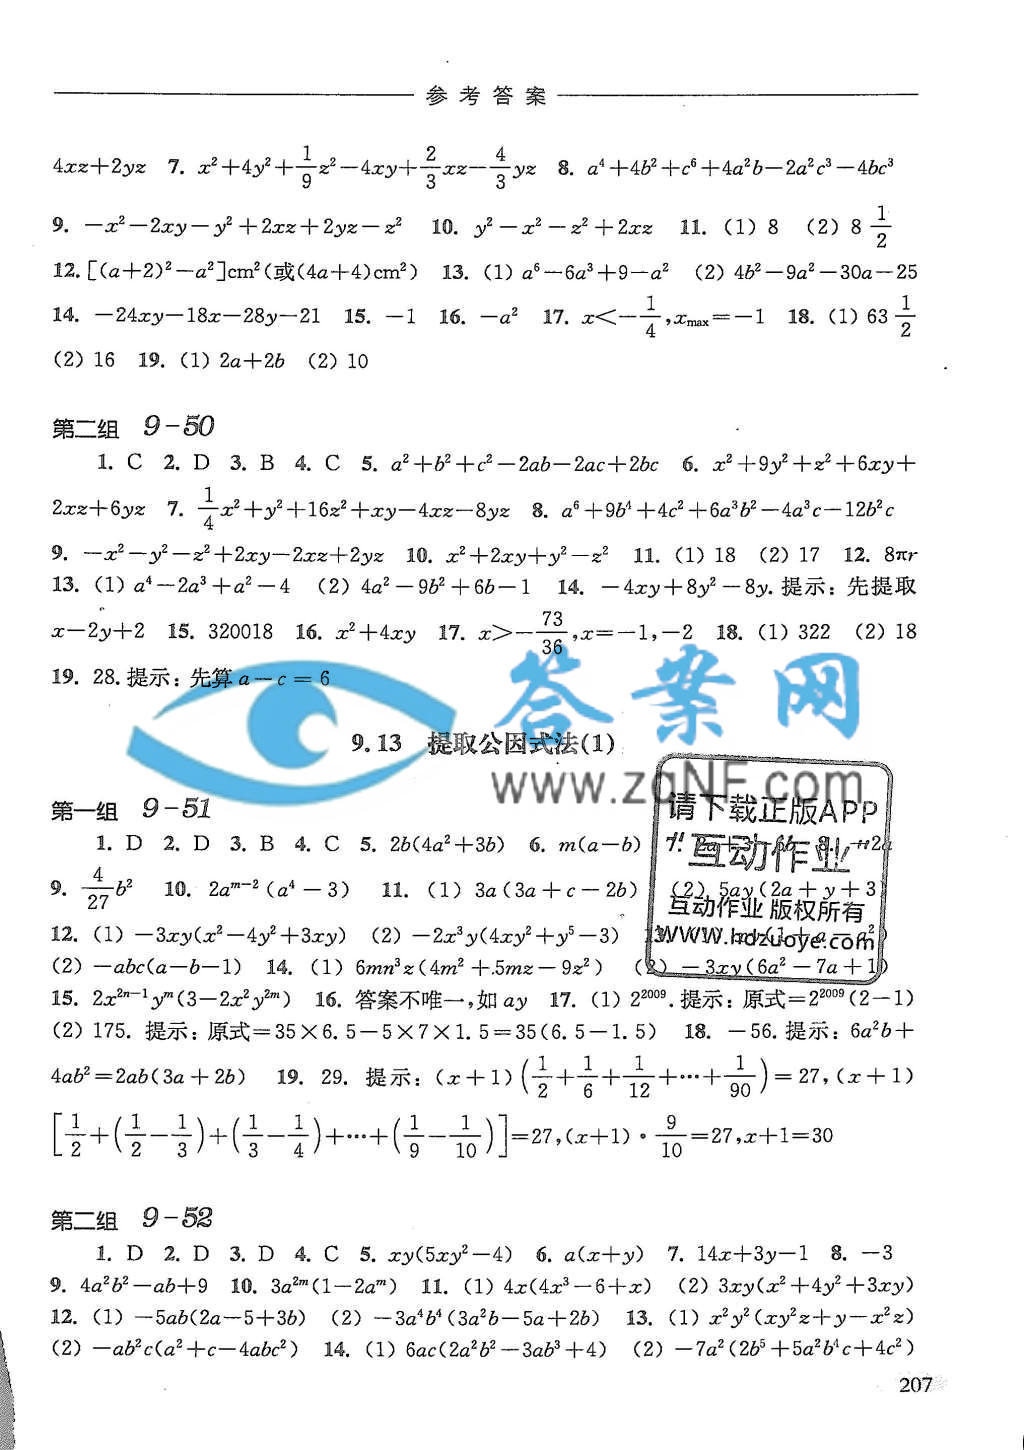 参考答案
4xz+2yz 7. x²+4y²+1/9z²-4xy+2/3xz-4/3yz 8. a⁴+4b²+c⁶+4a²b-2a²c³-4bc³
9. -x²-2xy-y²+2xz+2yz-z² 10. y²-x²-z²+2xz 11. (1) 8 (2) 8 1/2
12. [(a+2)²-a²]cm²(或(4a+4)cm²) 13. (1) a⁶-6a³+9-a² (2) 4b²-9a²-30a-25
14. -24xy-18x-28y-21 15. -1 16. -a² 17. x<-1/4,xmax=-1 18. (1) 63 1/2
(2) 16 19. (1) 2a+2b (2) 10
第二组 9-50
1. C 2. D 3. B 4. C 5. a²+b²+c²-2ab-2ac+2bc 6. x²+9y²+z²+6xy+
2xz+6yz 7. 1/4x²+y²+16z²+xy-4xz-8yz 8. a⁶+9b⁴+4c²+6a³b²-4a³c-12b²c
9. -x²-y²-z²+2xy-2xz+2yz 10. x²+2xy+y²-z² 11. (1) 18 (2) 17 12. 8πr
13. (1) a⁴-2a³+a²-4 (2) 4a²-9b²+6b-1 14. -4xy+8y²-8y.提示:先提取
x-2y+2 15. 320018 16. x²+4xy 17. x>-73/36,x=-1,-2 18. (1) 322 (2) 18
19. 28.提示:先算a-c=6
答案网
9.13 提取公因式法(1)
www.zqNF.com
第一组 9-51
请下载正版APP
1. D 2. D 3. B 4. C 5. 2b(4a²+3b) 6. m(a-b) 7.
互动作业
9. 4/27b² 10. 2aᵐ⁻²(a⁴-3) 11. (1) 3a(3a+c-2b) (2) 5ay(2a+y+3)
互动作业 版权所有
12. (1) -3xy(x²-4y²+3xy) (2) -2x³y(4xy²+y⁵-3)
www.hdzuoye.com
(2) -abc(a-b-1) 14. (1) 6mn³z(4m²+5mz-9z²) (2) -3xy(6a²-7a+1)
15. 2x²ⁿ⁻¹yᵐ(3-2x²y²ᵐ) 16. 答案不唯一,如ay 17. (1) 2²⁰⁰⁹.提示:原式=2²⁰⁰⁹(2-1)
(2) 175. 提示:原式=35×6.5-5×7×1.5=35(6.5-1.5) 18. -56.提示:6a²b+
4ab²=2ab(3a+2b) 19. 29. 提示:(x+1)(1/2+1/6+1/12+…+1/90)=27,(x+1)
[1/2+(1/2-1/3)+(1/3-1/4)+…+(1/9-1/10)]=27,(x+1)·9/10=27,x+1=30
第二组 9-52
1. D 2. D 3. D 4. C 5. xy(5xy²-4) 6. a(x+y) 7. 14x+3y-1 8. -3
9. 4a²b²-ab+9 10. 3a²ᵐ(1-2aᵐ) 11. (1) 4x(4x³-6+x) (2) 3xy(x²+4y²+3xy)
12. (1) -5ab(2a-5+3b) (2) -3a⁴b⁴(3a²b-5a+2b) 13. (1) x²y²(xy²z+y-x²z)
(2) -ab²c(a²+c-4abc²) 14. (1) 6ac(2a²b²-3ab³+4) (2) -7a²(2b⁵+5a²b⁴c+4c²)
207